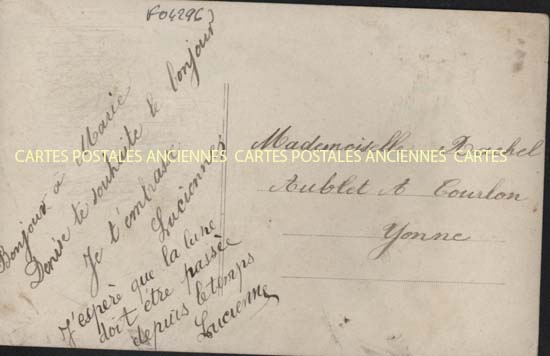 F04296
Bonjour a Marie
Denise te souhaite le bonjour
Je t'embrasse
Lucienne
J'espère que la lune
doit être passée
depuis le temps
Lucienne
Mademoiselle Rachel
Aublet A Courlon
Yonne
CARTES POSTALES ANCIENNES CARTES POSTALES ANCIENNES CARTES